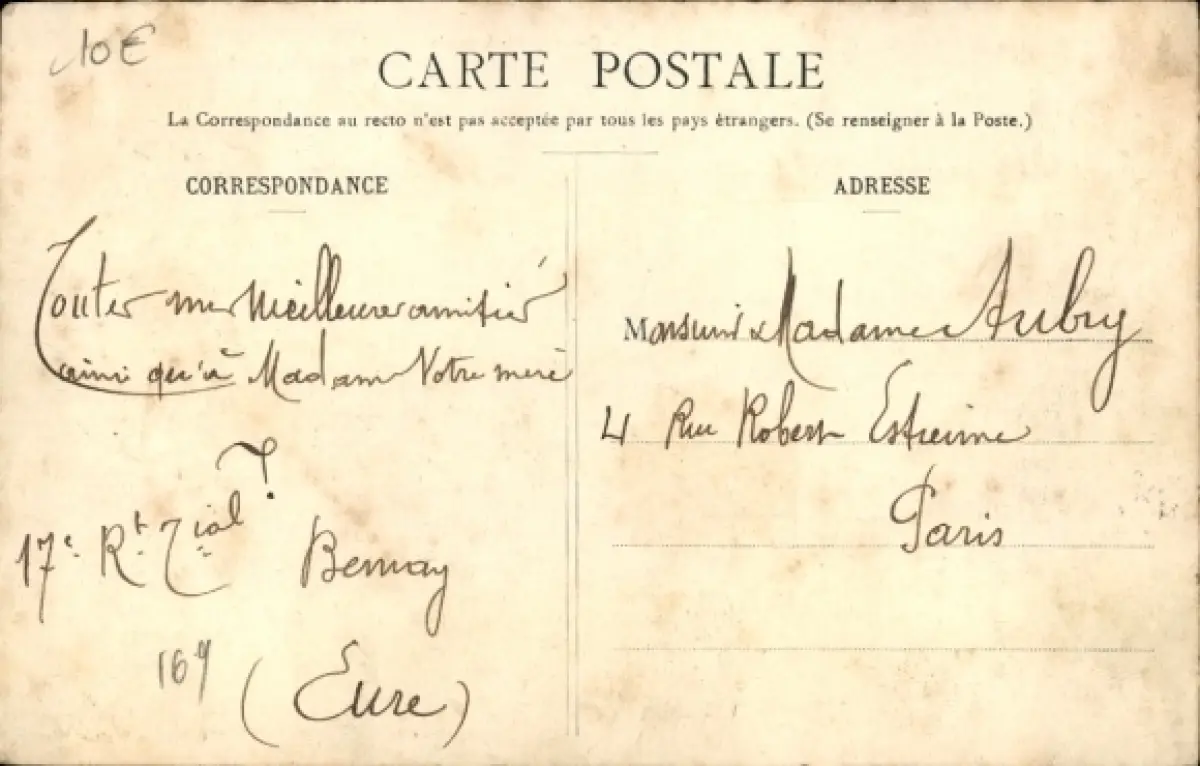 10€
CARTE POSTALE
La Correspondance au recto n'est pas acceptée par tous les pays étrangers. (Se renseigner à la Poste.)
CORRESPONDANCE
Toutes mes meilleures amitiés
ainsi qu'à Madame Votre mère
17e Rt Tial
Bernay
169
(Eure)
ADRESSE
Monsieur & Madame Aubry
4 Rue Robert Estienne
Paris